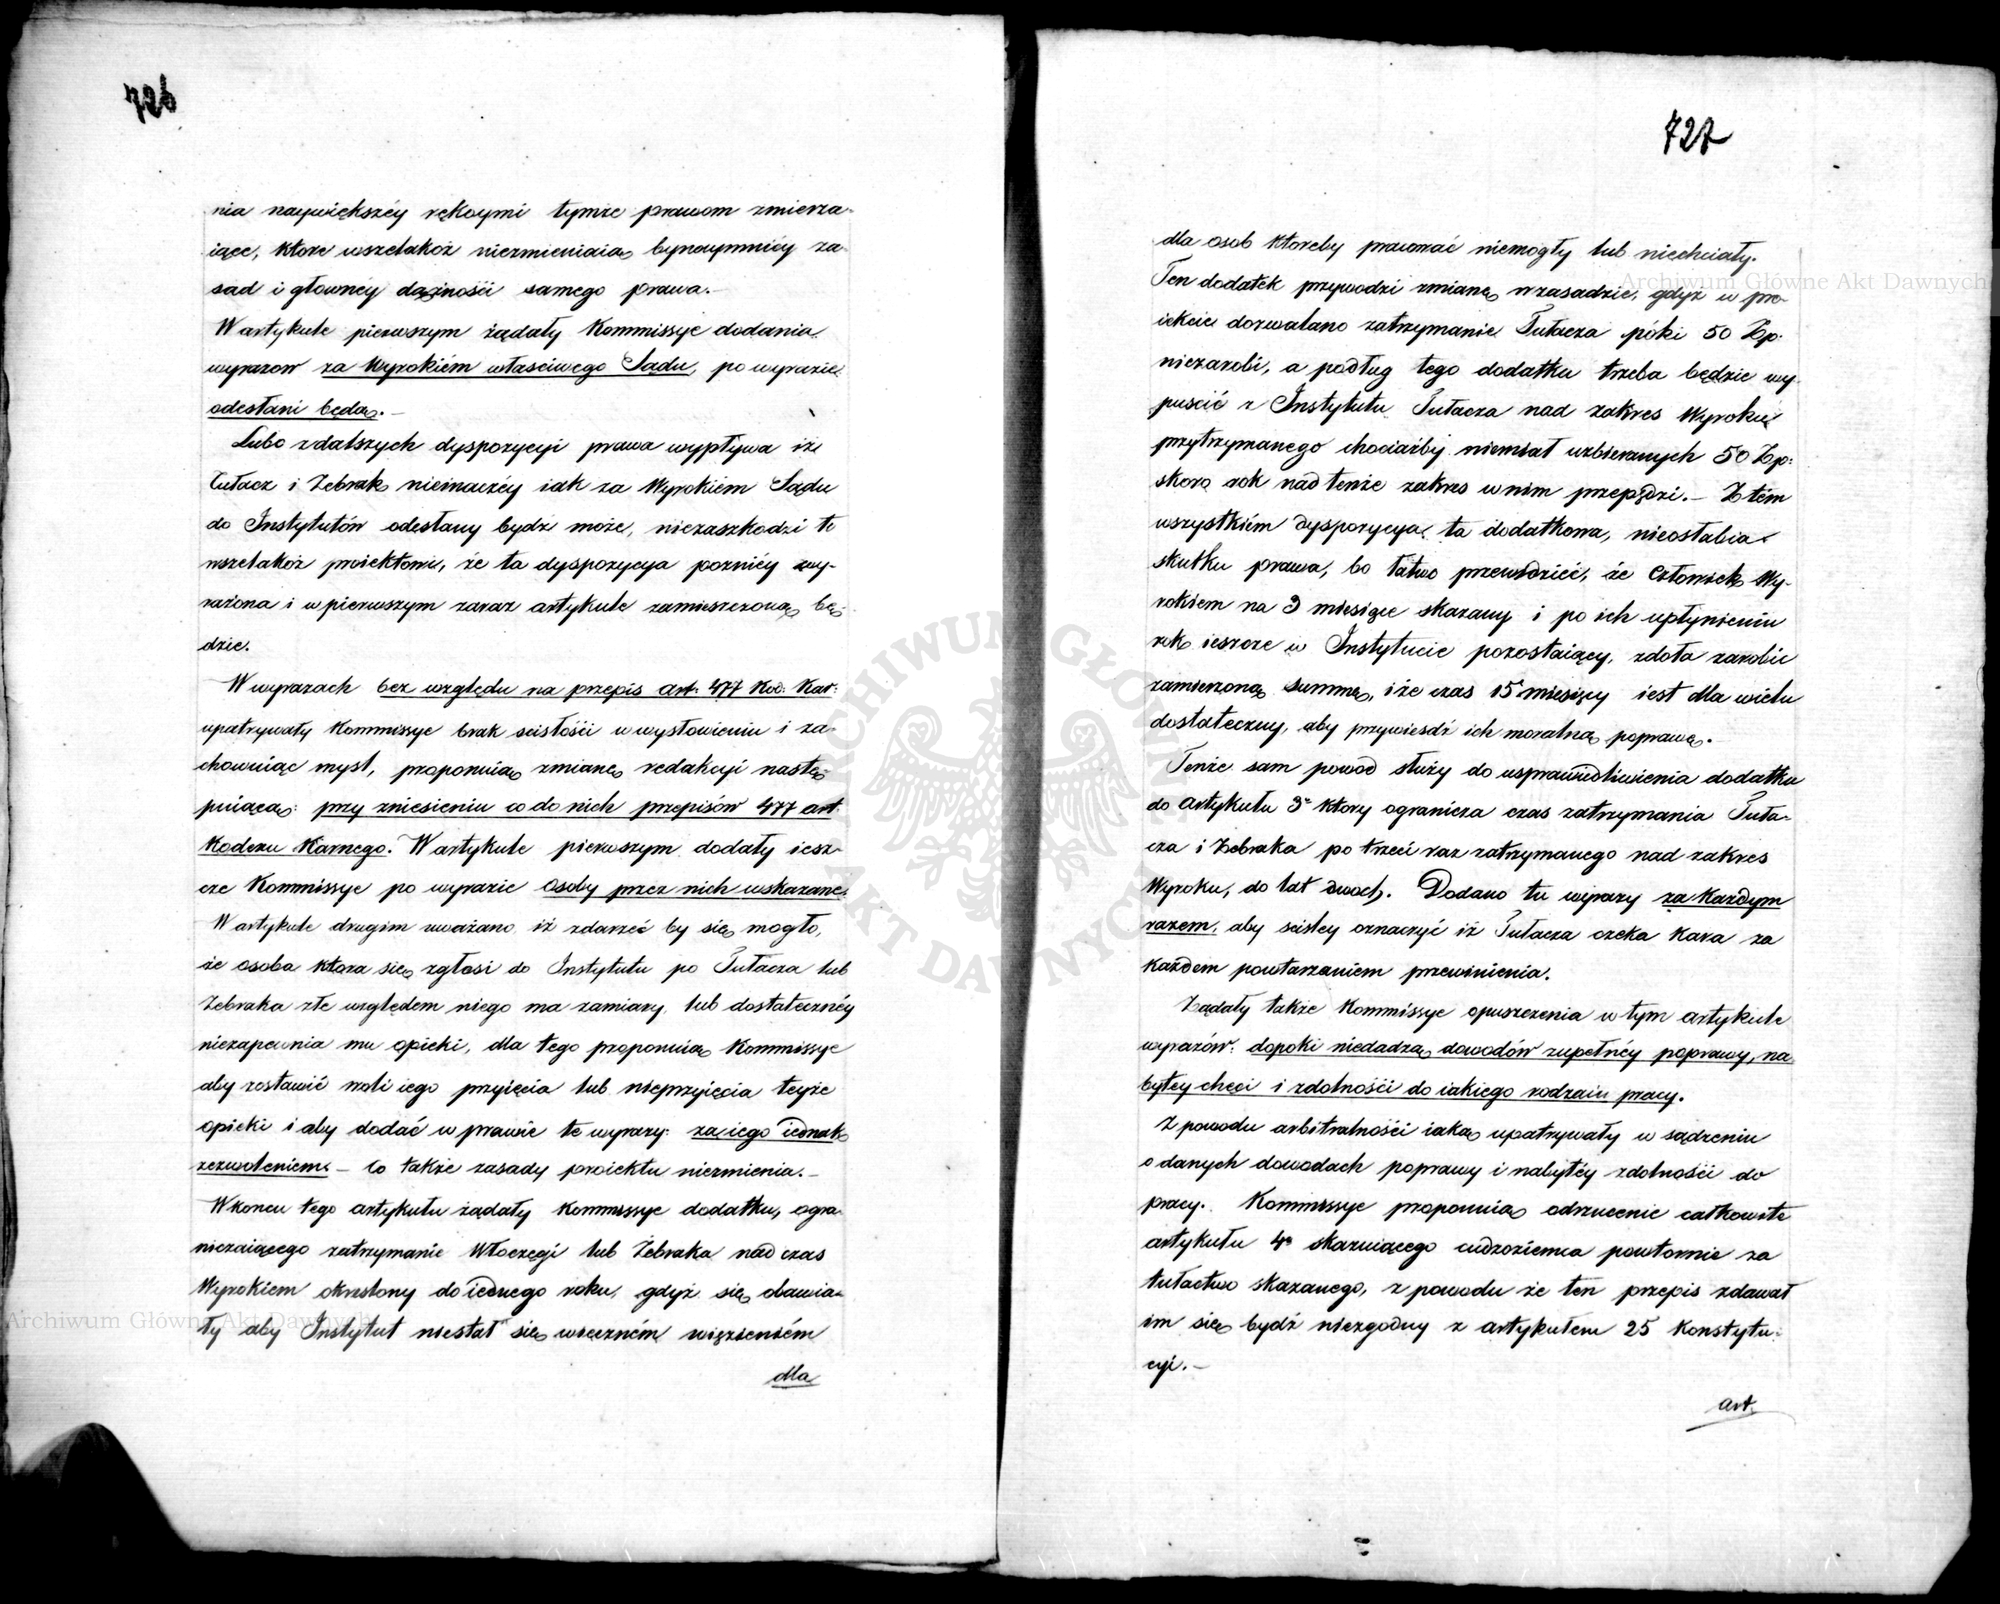 726
nia naywiększéy rękoymi tymże prawom zmierza-
iące, które wszelakoż niezmieniaią bynaymniéy za-
sad i główney dążnośći samego prawa.-
W artykule pierwszym żądały Kommissye dodania
wyrazow za Wyrokiém właściwego Sądu, po wyrazie
odesłani będą.-
Lubo z dalszych dyspozycyi prawa wypływa iż
Tułacz i Żebrak nieinaczéy iak za Wyrokiém Sądu
do Instytutów odesłany bydź może, niezaszkodzi to
wszelakoż proiektowi, że ta dyspozycya poznićy wy-
rażona i w pierwszym zaraz artykule zamieszczoną bę-
dzie.
W wyrazach bez względu na przepis art: 477 Kod: Kar:
upatrywały Kommissye brak scisłośći w wysłowieniu i za-
chowuiąc mysl, proponuią zmianę redakcyi nastę-
puiącą: przy zniesieniu co do nich przepisów 477 art:
Kodexu Karnego. W artykule pierwszym dodały iesz-
cze Kommissye po wyrazie osoby przez nich wskazane.
W artykule drugim uważano iż zdarzéć by się mogło,
że osoba ktora się zgłosi do Instytutu po Tułacza lub
Żebraka złe względem niego ma zamiary, lub dostatecznéy
niezapewnia mu opieki, dla tego proponuią Kommissye
aby zostawić woli iego przyięcia lub nieprzyięcia teyże
opieki i aby dodać w prawie te wyrazy: za iego iednak
zezwoleniem. - Co także zasady proiektu niezmienia.-
W koncu tego artykułu żądały Kommissye dodatku, ogra-
niczaiącego zatrzymanie Włoczęgi lub Żebraka nad czas
Wyrokiem okreslony do iednego roku, gdyż się obawia-
ły aby Instytut niestał się wiecznem więzieniém
dla
727
dla osob któreby pracować niemogły lub niechciały.
Ten dodatek przywodzi zmianę w zasadzie, gdyż w pro-
iekcie dozwalano zatrzymanie Tułacza póki 50 Zp:
niezarobi, a podług tego dodatku trzeba będzie wy-
puscić z Instytutu Tułacza nad zakres Wyroku
przytrzymanego chociażby niemiał uzbieranych 50 Zp:
skoro rok nad tenże zakres w nim przepędzi.- Z tém
wszystkiém dyspozycya ta dodatkowa, nieosłabia
skutku prawa, bo łatwo przewidzieć, że Człowiek Wy-
rokiem na 3 miesiące skazany i po ich upłynieniu
rok ieszcze w Instytucie pozostaiący, zdoła zarobić
zamierzoną summę, i że czas 15 miesięcy iest dla wielu
dostateczny, aby przywiesdź ich moralną poprawę.
Tenże sam powod służy do usprawiedliwienia dodatku
do artykułu 3° ktory ogranicza czas zatrzymania Tuła-
cza i Żebraka po trzeci raz zatrzymanego nad zakres
Wyroku, do lat dwoch. Dodano tu wyrazy za każdym
razem, aby scisley oznaczyć iż Tułacza czeka kara za
każdem powtarzaniem przewinienia.
Żądały także Kommissye opuszczenia w tym artykule
wyrazów: dopoki niedadzą dowodów zupełnéy poprawy, na-
bytey chęci i zdolnośći do iakiego rodzaiu pracy.
Z powodu arbitralnośći iaką upatrywały w sądzeniu
o danych dowodach poprawy i nabytéy zdolnośći do
pracy. Kommissye proponuią odrzucenie całkowite
artykułu 4° skazuiącego cudzoziemca powtornie za
tułactwo skazanego, z powodu że ten przepis zdawał
im się bydź niezgodny z artykułem 25 Konstytu-
cyi.-
art.
Archiwum Główne Akt Dawnych
Archiwum Główne Akt Dawnych
ARCHIWUM GŁÓWNE AKT DAWNYCH